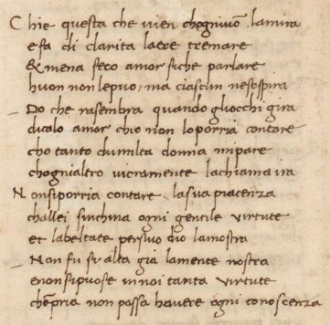 Chie questa che vien chogniuo᷃ lamira
e fa di clarita laere tremare
& mena seco amor siche parlare
huon non lepuo, ma ciascun nesospira
Do che rasembra quando gliocchi gira
dicalo amor chio non loporria contare
cho tanto dumilta donna mi pare
chognialtro veramente lachiama ira
Nonsiporria contare lasua piacenza
challei sinchina ogni gentile virtute
et labeltate persuo dio lamostra
Non fu si alta gia lamente nostra
e non sipuose innoi tanta virtute
che᷃pria non possa havere ogni conoscenza